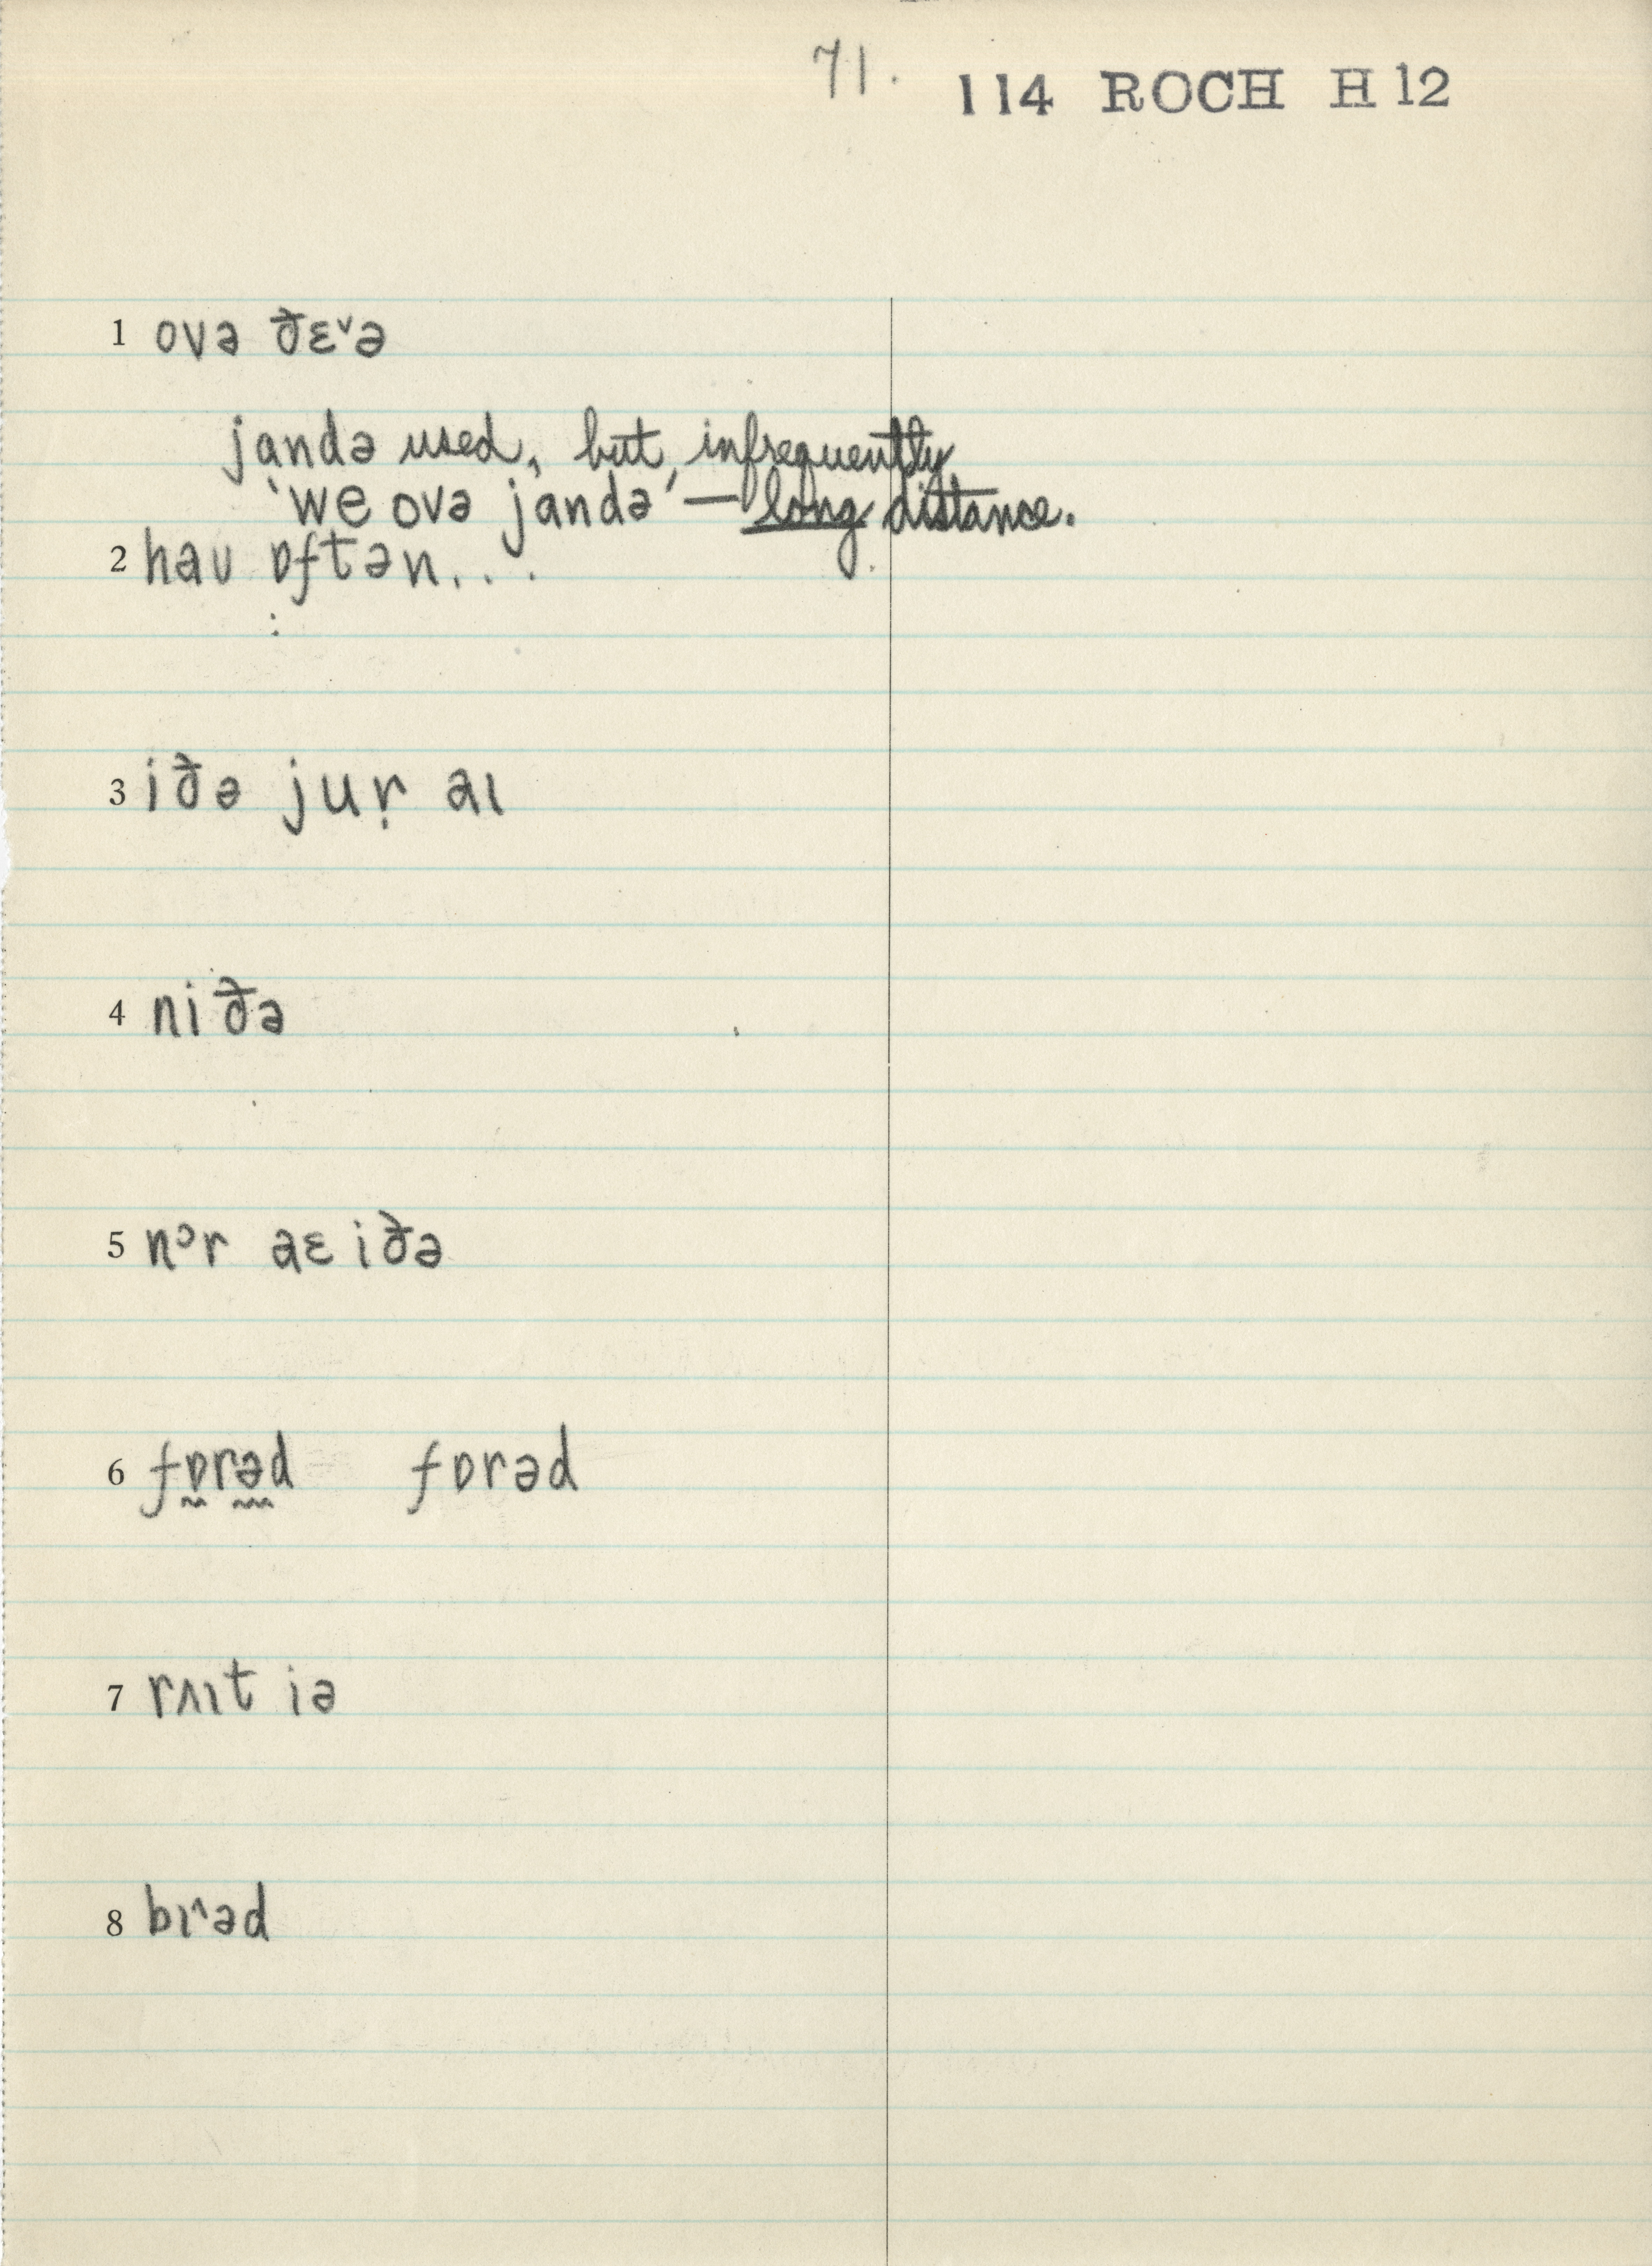 71. 114 ROCH H 12
1 ovə ðɛ˅ə
ja̩ndə used, but infrequently
'we ovə jandə' — long distance.
2 haʊ ɒftən...
3 iðə juṛ aɪ
4 niðə
5 nᵓr aɛ iðə
6 fɒ̰rə̰d fɒrəd
7 rʌɪt iə
8 bɪ^əd